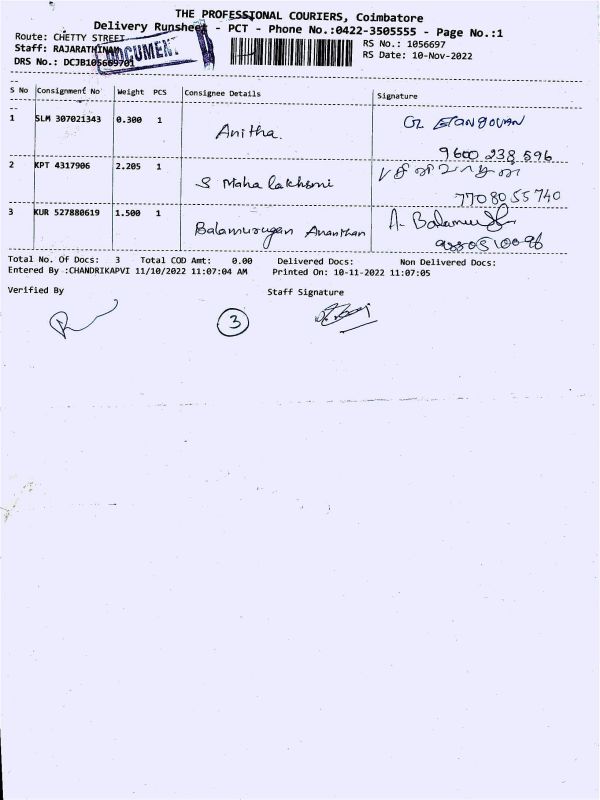 THE PROFESSIONAL COURIERS, Coimbatore
Delivery Runsheet - PCT - Phone No.:0422-3505555 - Page No.:1
Route: CHETTY STREET
Staff: RAJARATHINAM
DRS No.: DCJB105669701
DOCUMENT
RS No.: 1056697
RS Date: 10-Nov-2022
S No Consignment No Weight PCS Consignee Details Signature
1 SLM 307021343 0.300 1 Anitha. G. Elangovan
9600 238 596
2 KPT 4317906 2.205 1 S Maha lakhsmi
7708055740
3 KUR 527880619 1.500 1 Balamurugan Ananthan A. Balamu
Total No. Of Docs: 3 Total COD Amt: 0.00 Delivered Docs: Non Delivered Docs:
Entered By :CHANDRIKAPVI 11/10/2022 11:07:04 AM Printed On: 10-11-2022 11:07:05
Verified By Staff Signature
3